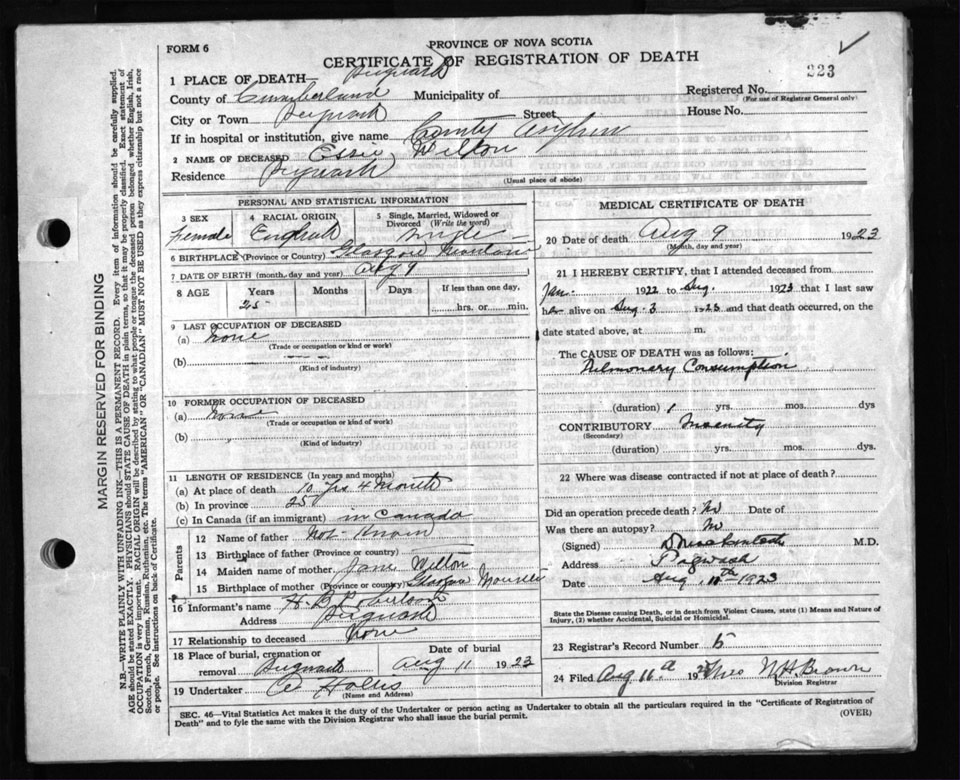 FORM 6
PROVINCE OF NOVA SCOTIA
CERTIFICATE OF REGISTRATION OF DEATH
223
1 PLACE OF DEATH Pugwash
County of Cumberland Municipality of Registered No.
(For use of Registrar General only)
City or Town Pugwash Street House No.
If in hospital or institution, give name County Asylum
2 NAME OF DECEASED Essie Wilton
Residence Pugwash
(Usual place of abode)
PERSONAL AND STATISTICAL INFORMATION
3 SEX 4 RACIAL ORIGIN 5 Single, Married, Widowed or Divorced (Write the word)
Female English Single
6 BIRTHPLACE (Province or Country) Glasgow Mountain
7 DATE OF BIRTH (month, day and year) Aug 9
8 AGE Years Months Days If less than one day,
25 hrs. or min.
9 LAST OCCUPATION OF DECEASED
(a) None
(Trade or occupation or kind or work)
(b)
(Kind of industry)
10 FORMER OCCUPATION OF DECEASED
(a) None
(Trade or occupation or kind of work)
(b)
(Kind of industry)
11 LENGTH OF RESIDENCE (In years and months)
(a) At place of death 10 yrs 4 Months
(b) In province 25
(c) In Canada (if an immigrant) in Canada
Parents
12 Name of father Not Known
13 Birthplace of father (Province or country)
14 Maiden name of mother Jane Wilton
15 Birthplace of mother (Province or country) Glasgow
16 Informant's name H. B. P.
Address Pugwash
17 Relationship to deceased None
18 Place of burial, cremation or removal Date of burial
Pugwash Aug 11 1923
19 Undertaker Hollis
(Name and Address)
MEDICAL CERTIFICATE OF DEATH
20 Date of death Aug 9 1923
(Month, day and year)
21 I HEREBY CERTIFY, that I attended deceased from
Jan. 1922 to Aug. 1923 that I last saw
her alive on Aug 3 1923 and that death occurred, on
date stated above, at m.
The CAUSE OF DEATH was as follows:
Pulmonary Consumption
(duration) 1 yrs. mos. dys
CONTRIBUTORY Insanity
(Secondary)
(duration) yrs. mos. dys.
22 Where was disease contracted if not at place of death?
Did an operation precede death? No Date of
Was there an autopsy? No
(Signed) M.D.
Address Pugwash
Date Aug. 10th 1923
State the Disease causing Death, or in death from Violent Causes, state (1) Means and Nature of
Injury, (2) whether Accidental, Suicidal or Homicidal.
23 Registrar's Record Number 5
24 Filed Aug 11th 1923 N. H. Brown
Division Registrar
SEC. 46—Vital Statistics Act makes it the duty of the Undertaker or person acting as Undertaker to obtain all the particulars required in the "Certificate of Registration of
Death" and to fyle the same with the Division Registrar who shall issue the burial permit.
(OVER)
MARGIN RESERVED FOR BINDING
N.B.—WRITE PLAINLY WITH UNFADING INK—THIS IS A PERMANENT RECORD. Every item of information should be carefully supplied.
AGE should be stated EXACTLY. PHYSICIANS should STATE CAUSE OF DEATH in plain terms, so that it may be properly classified. Exact statement of
OCCUPATION is very important. RACIAL ORIGIN will be described by stating to what people or tongue the deceased person belonged whether English, Irish,
Scotch, French, German, Russian, Ruthenian, etc. The terms "AMERICAN" OR "CANADIAN" MUST NOT BE USED as they express citizenship but not a race
or people. See instructions on back of Certificate.